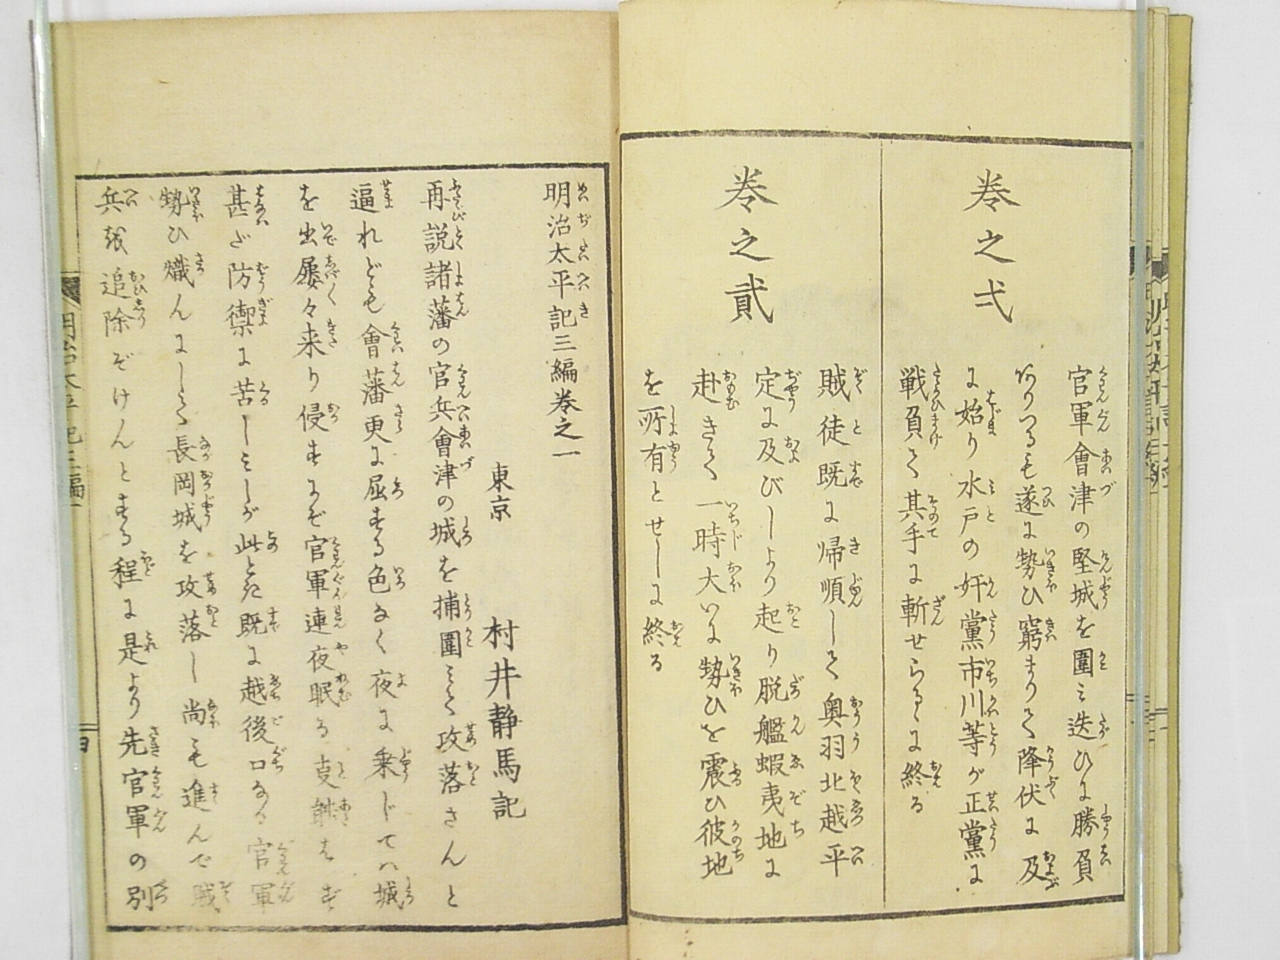 巻之弌
官軍會津の堅城を圍ミ迭ひに勝負
ありつるも遂に勢ひ窮まりて降伏に及
に始り水戸の奸黨市川等が正黨に
戦負て其手に斬せらるゝに終る
巻之貳
賊徒既に帰順して奥羽北越平
定に及びしより起り脱艦蝦夷地に
赴きて一時大いに勢ひを震ひ彼地
を所有とせしに終る
明治太平記三編巻之一
東京 村井静馬記
再説諸藩の官兵會津の城を捕圍ミて攻落さんと
逼れども會藩更に屈する色なく夜に乗じては城
を出屡々来り侵すにぞ官軍連夜眠る支能はず
甚だ防禦に苦しミしが此とき既に越後口なる官軍
勢ひ熾んにして長岡城を攻落し尚も進んで賊
兵を追除ぞけんとする程に是より先官軍の別